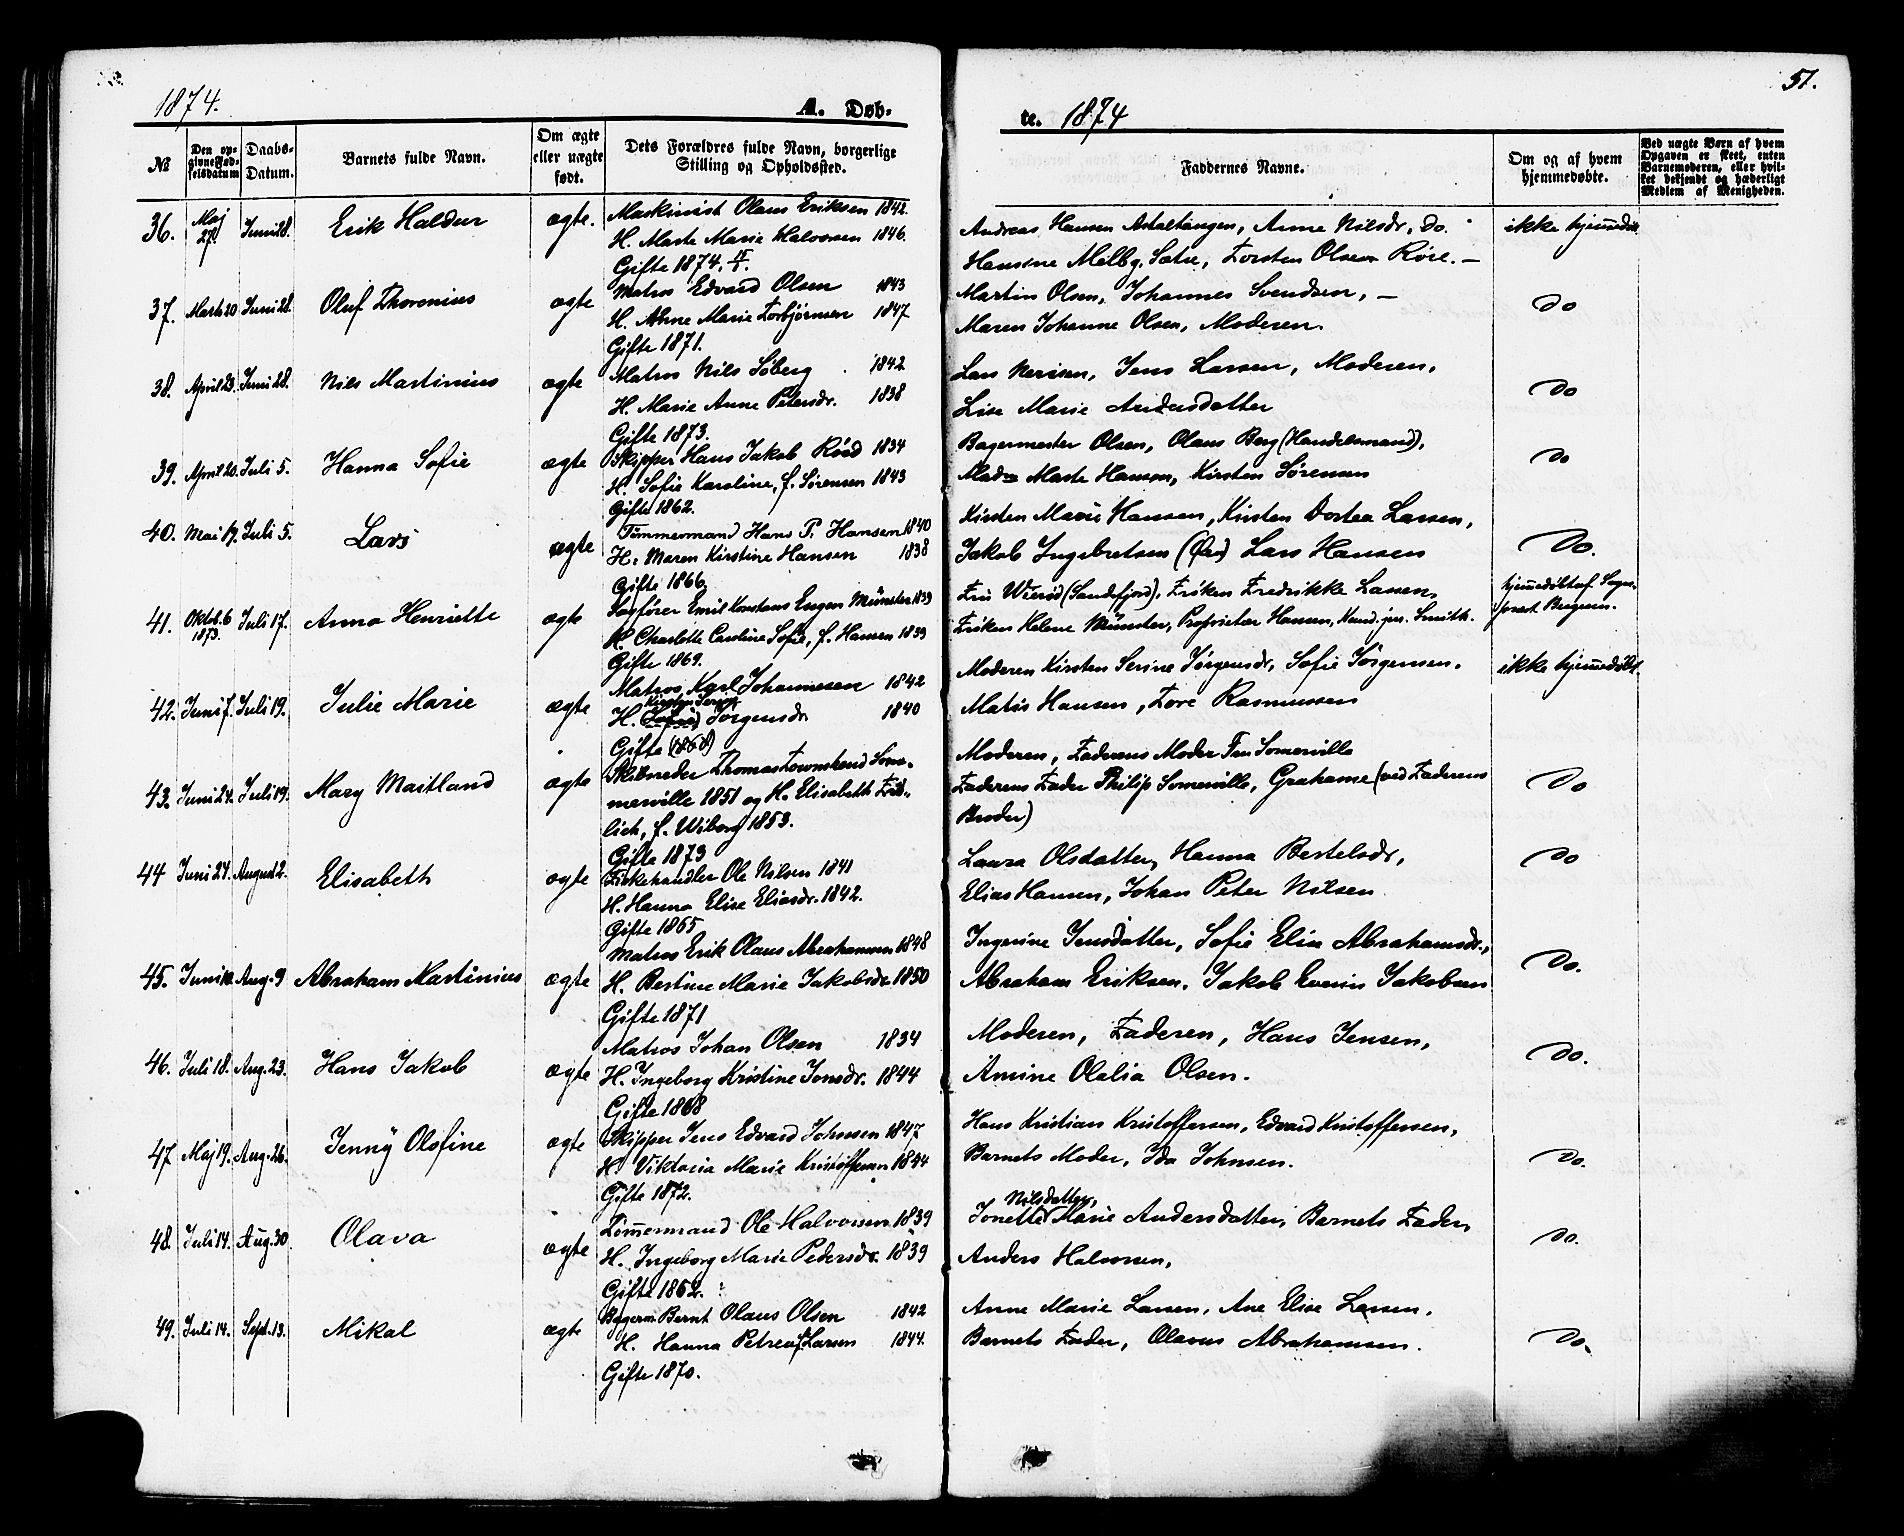 1874.
A. Døb-
№
Den op-
givne Fød-
selsdatum
Daabs-
Datum.
Barnets fulde Navn.
Om ægte
eller uægte
født.
Dets Forældres fulde Navn, borgerlige
Stilling og Opholdssted.
36. Maj 27. Juni 28. Erik Haldur ægte.
Maskinist Olaus Eriksen 1842.
H. Marte Marie Halvorsen 1846.
Gifte 1874,
37. Marts 20 Juni 28. Oluf Thorenius ægte
Matros Edvard Olsen 1843
H. Anne Marie Torbjørnsen 1847
Gifte 1871.
38. April 23. Juni 28. Nils Martinius ægte
Matros Nils Söberg 1842
H. Marie Anne Petersdr. 1838
Gifte 1873.
39. April 20. Juli 5. Hanna Sofie ægte
Skipper Hans Jakob Rööd 1834
H. Sofie Karoline, f. Sörensen 1843
Gifte 1862.
40. Mai 17. Juli 5. Lars ægte
Tømmermand Hans P. Hansen 1840
H. Maren Kirstine Hansen 1838
Gifte 1866.
41. Oktob. 6 1873. Juli 17. Anna Henriette ægte
Sagfører Emil Konstans Eugen Münster 1839
H. Charlotte Caroline Sofie, f. Hansen 1839
Gifte 1869.
42. Juni 7. Juli 19. Julie Marie ægte
Matros Karl Johannesen 1842
Kirsten Serine
H. (Sofie) Jörgensdr. 1840
Gifte (1868)
43. Juni 24. Juli 19. Mary Maitland ægte
Skibsreder Thomas Townshend Som-
merville 1851 og H. Elisabeth Frö-
lich, f. Wiborg 1853.
Gifte 1873
44 Juni 27. August 2. Elisabeth ægte
Fiskehandler Ole Nilsen 1841
H. Hanna Elise Eliasdr. 1842.
Gifte 1865
45. Juni 12. Aug. 9 Abraham Martinius ægte
Matros Erik Olaus Abrahamsen 1848
H. Bertine Marie Jakobsdr. 1850
Gifte 1871
46. Juli 18. Aug. 23. Hans Jakob ægte
Matros Johan Olsen 1834
H. Ingeborg Kristine Jonsdr. 1844
Gifte 1868
47 Maj 19. Aug. 26. Jenny Olofine ægte
Skipper Jens Edvard Johnsen 1847
H. Viktoria Marie Kristoffersen 1844
Gifte 1872.
48. Juli 14. Aug. 30. Olava ægte
Tömmermand Ole Halvorsen 1839
H. Ingeborg Marie Pedersdr. 1839
Gifte 1862.
49. Juli 14. Sept. 13. Mikal ægte
Bagerm. Bernt Olaus Olsen 1842
H. Hanna Petrea f. Larsen 1844.
Gifte 1870.
te. 1874
51.
Faddernes Navne.
Om og af hvem
hjemmedøbte.
Ved uægte Børn af hvem
Opgaven er skeet, enten
Barnemoderen, eller hvil-
ket bekjendt og hæderligt
Medlem af Menigheden.
Andreas Hansen Astaltangen, Anne Nilsdr, do.
Hansine Melby. Sætre, Torsten Olsen Röre. —
ikke hjemmedöbt
Martin Olsen, Johannes Svendsen, —
Maren Johanne Olsen, Moderen.
Do
Lars Iversen, Jens Larsen, Moderen,
Lise Marie Andersdatter
Do
Bagermester Olsen, Olaus Berg (Handelsmand),
Madm Marte Hansen, Kirsten Sørensen
Do
Kirsten Marie Hansen, Kirsten Dortea Larsen,
Jakob Ingebretsen (Øen) Lars Hansen
Do.
Fru Wierød (Sandefjord), Fröken Fredrikke Larsen,
Fröken Helene Münster, Proprietær Hansen, Kand. jur. Smith.
hjemmedöbt af Sogne-
præst Buggum.
Moderen Kirsten Serine Jörgensdr, Sofie Jörgensen.
Matis Hansen, Tore Rasmussen
ikke hjemmedöbt.
Moderen, Faderens Moder Fru Somerville
Faderens Fader Philip Somerville, Grahame (ved Faderens
Broder)
Do
Laura Olsdatter, Hanna Bertelsdr,
Elias Hansen, Johan Peter Nilsen
Do
Ingerine Jensdatter, Sofie Elise Abrahamsdr.,
Abraham Eriksen, Jakob Evenius Jakobsen
Do.
Moderen, Faderen, Hans Jensen,
Amine Olalia Olsen.
Do.
Hans Kristian Kristoffersen, Edvard Kristoffersen,
Barnets Moder, Ida Johnsen.
Do.
Nilsdatter,
Jonette Marie Andersdatter, Barnets Fader,
Anders Halvorsen,
Do.
Anne Marie Larsen, Ane Elise Larsen,
Barnets Fader, Olavus Abrahamsen.
Do.